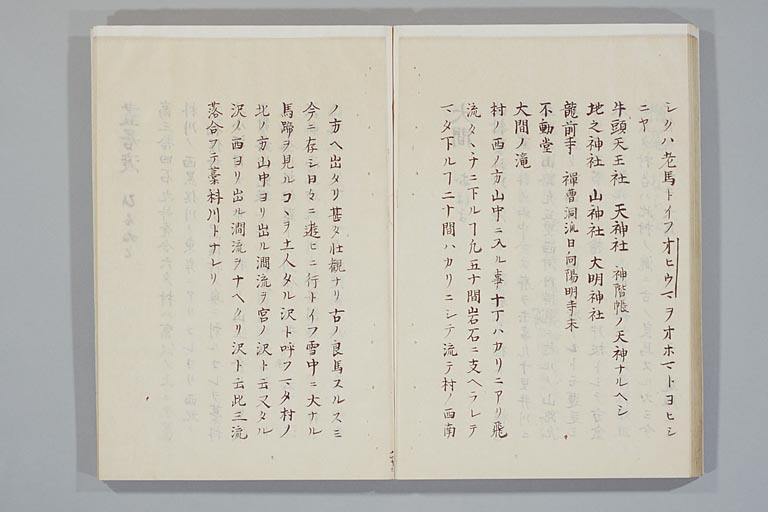 シクハ老馬トイフオヒウマヲオホマトヨヒシ
ニヤ
牛頭天王社 天神社 神階帳ノ天神ナルヘシ
地之神社 山神社 大明神社
龍前寺 禅曹洞流日向陽明寺末
不動堂
大間ノ滝
村ノ西ノ方山中ニ入ル事十丁ハカリニアリ飛
流タヽチニ下ルヿ凡五十間岩石ニ支ヘラレテ
マタ下ルヿ二十間ハカリニシテ流テ村ノ西南
ノ方ヘ出タリ甚タ壮観ナリ古ノ良馬スルスミ
今ニ存シ日々ニ遊ヒニ行トイフ雪中ニ大ナル
馬蹄ヲ見ルコヽヲ土人タル沢ト呼フマタ村ノ
北ノ方山中ヨリ出ル澗流ヲ宮ノ沢ト云又タル
沢ノ西ヨリ出ル澗流ヲナヘクリ沢ト云此三流
落合フテ藁科川トナレリ